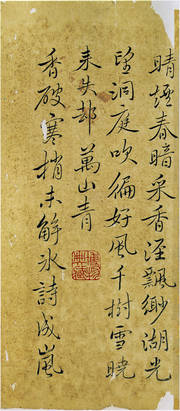 晴煙春暗采香涇飄緲湖光
望洞庭吹徧好風千樹雪曉
来失却萬山青
香破寒梢未解冰詩成嵐